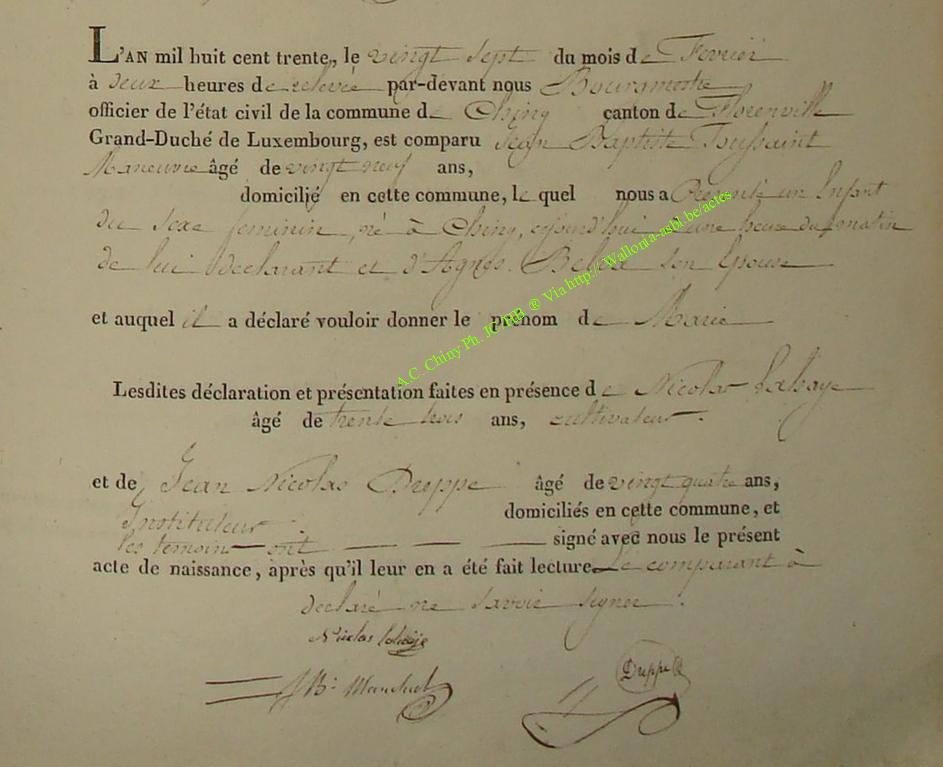 L'AN mil huit cent trente, le vingt sept du mois de Fevrier
à deux heures de relevé par-devant nous Bourgmestre
officier de l'état civil de la commune de Chiny canton de Florenville
Grand-Duché de Luxembourg, est comparu Jean Baptiste Toussaint
Manœuvre âgé de vingt neuf ans,
domicilié en cette commune, le quel nous a Presenté un Enfant
du sexe feminin, né à Chiny, cejourd'hui a une heure du matin
de lui declarant et d'Agnés son Epouse
et auquel il a déclaré vouloir donner le prénom de Marie
Lesdites déclaration et présentation faites en présence de Nicolas Lahaye
âgé de trente trois ans, cultivateur.
et de Jean Nicolas Dreppe âgé de vingt quatre ans,
Instituteur. domiciliés en cette commune, et
les temoins ont signé avec nous le présent
acte de naissance, après qu'il leur en a été fait lecture. Le comparant à
declaré ne savoir signer.
Nicolas lahaije
Dreppe
JBte
A.C. Chiny Ph. ® Via http://Wallonia-asbl.be/actes